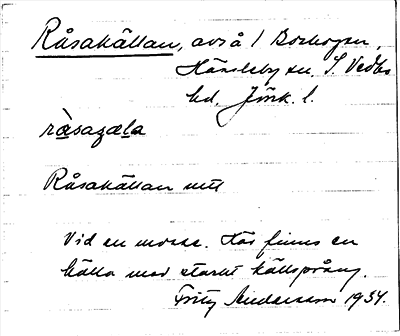 Råsakällan, avs å / Borhogen,
Hässleby sn. S. Vedbo
hd. Jönk. l.
ràsaȥæla
Råsakällan mtt
Vid en mosse. Här finns en
källa med starkt källsprång.
Fritz Andersson 1934.